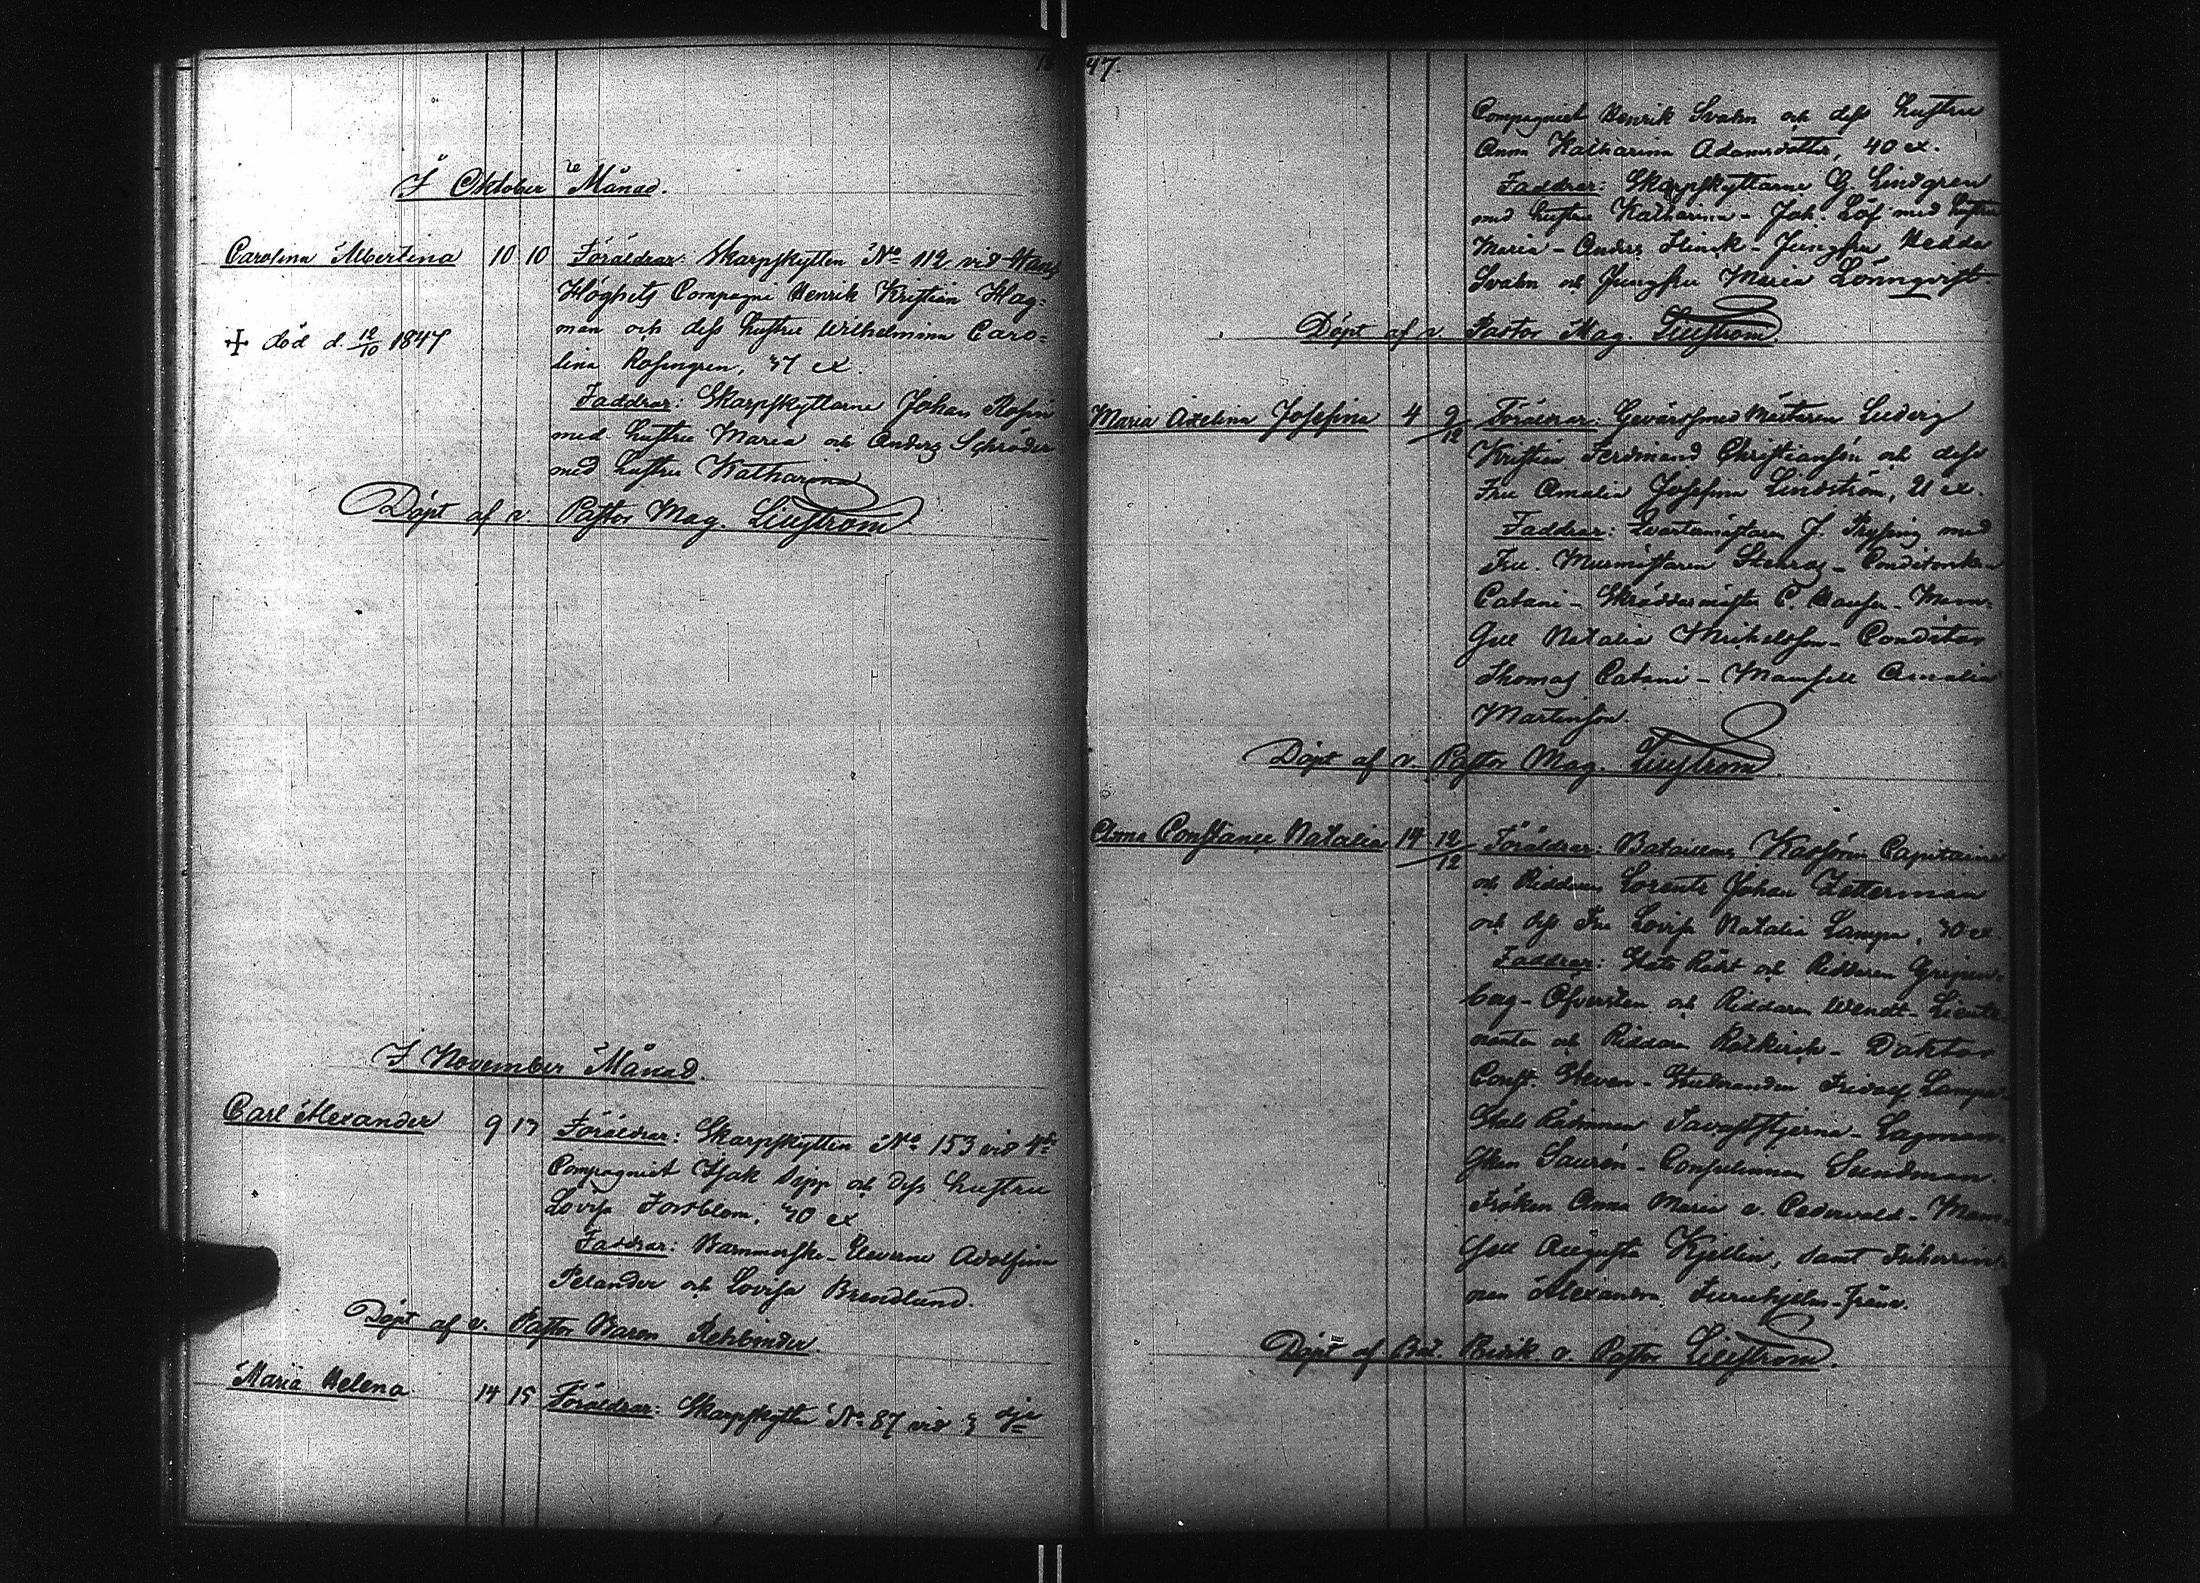 1847.
I Oktober Månad.
Carolina Albertina 10 10 Föräldrar: Skarpskytten No 112 vid Hans
Höghets Compagni Henrik Kristian Hag=
man och dess hustru Wilhelmina Caro=
+ död d. 12/10 1847
lina Rosengren, 37 ex.
Faddrar: Skarpskyttarne Johan Rosin
med hustru Maria och Anders Schröder
med hustru Katharina
Döpt af v. Pastor Mag. Liljeström
I November Månad.
Carl Alexander 9 13 Föräldrar: Skarpskytten No 153 vid 4de
Compagniet Isak Sipp och dess hustru
Lovisa Forsblom, 30 ex
Faddrar: Barnmorske-Eleverne Adolfina
Pelander och Lovisa Brendlund.
Döpt af v. Pastor Baron Rehbinder.
Maria Helena 14 15 Föräldrar: Skarpskytten No 87 vid 3dje
Compagniet Henrik Svahn och dess hustru
Anna Katharina Adamsdotter, 40 ex.
Faddrar: Skarpskyttarne G Lindgren
med hustru Katharina - Joh. Löf med hustru
Maria - Anders Flinck - Jungfru Hedda
Svahn och Jungfru Maria Lönnqvist.
Döpt af v. Pastor Mag. Liljeström.
Maria Axelina Josefina 4 9/12 Föräldrar: Gevärssmed Mästaren Ludvig
Kristian Ferdinand Christiansén och dess
Fru Amalia Josefina Lindström, 21 ex.
Faddrar: Qvartermästaren J. med
Fru. Murmästaren - Conditorskan
Catani - Skräddermäster C. - Mam=
sell Natalia Mikelsson - Conditor
Thomas Catani - Mamsell Amalia
Martinson.
Döpt af v. Pastor Mag. Liljeström.
Anna Constance Natalia 14 12/12 Föräldrar: Bataillons Kassören Capitaine
och Riddaren Lorents Johan Zetterman
och dess Fru Lovisa Natalia Lampa, 30 ex.
Faddrar: Stats Rådet och Riddaren Gripen=
berg - Öfversten och Riddaren Wendt - Lieute=
nanten och Riddaren Rotkirch - Doktor
Const. Steven - Studeranden Fridolf Lampa -
Stats Rådinnan Tavaststjerna - Lagman=
skan Saurén - Consulinnan Sundman.
Fröken Anna Maria v. Cederwald - Mam=
sell Augusta Kjellin, samt Friherrin=
nan Alexandra Furuhjelm
Döpt af Bat. Predik. v. Pastor Liljeström.